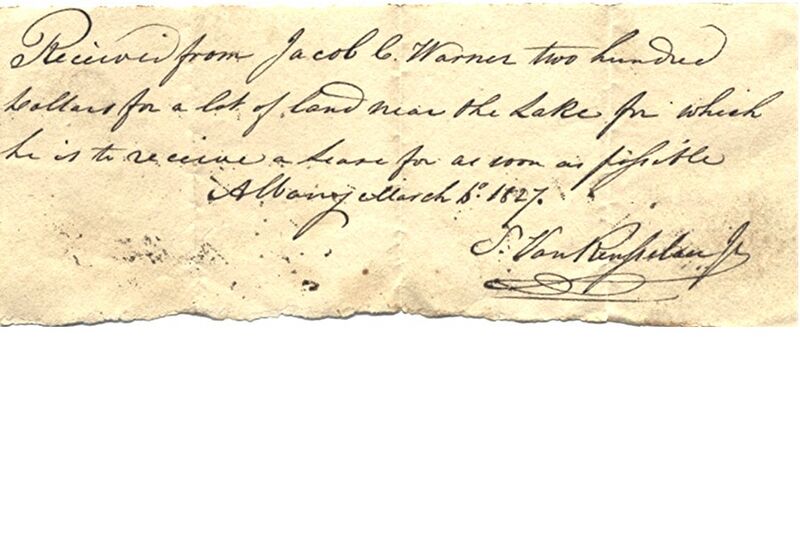 Received from Jacob C. Warner two hundred
Dollars for a lot of land near the Lake for which
he is to receive a Lease for as soon as possible
Albany March 6th. 1827.
S. Van Rensselaer Jr